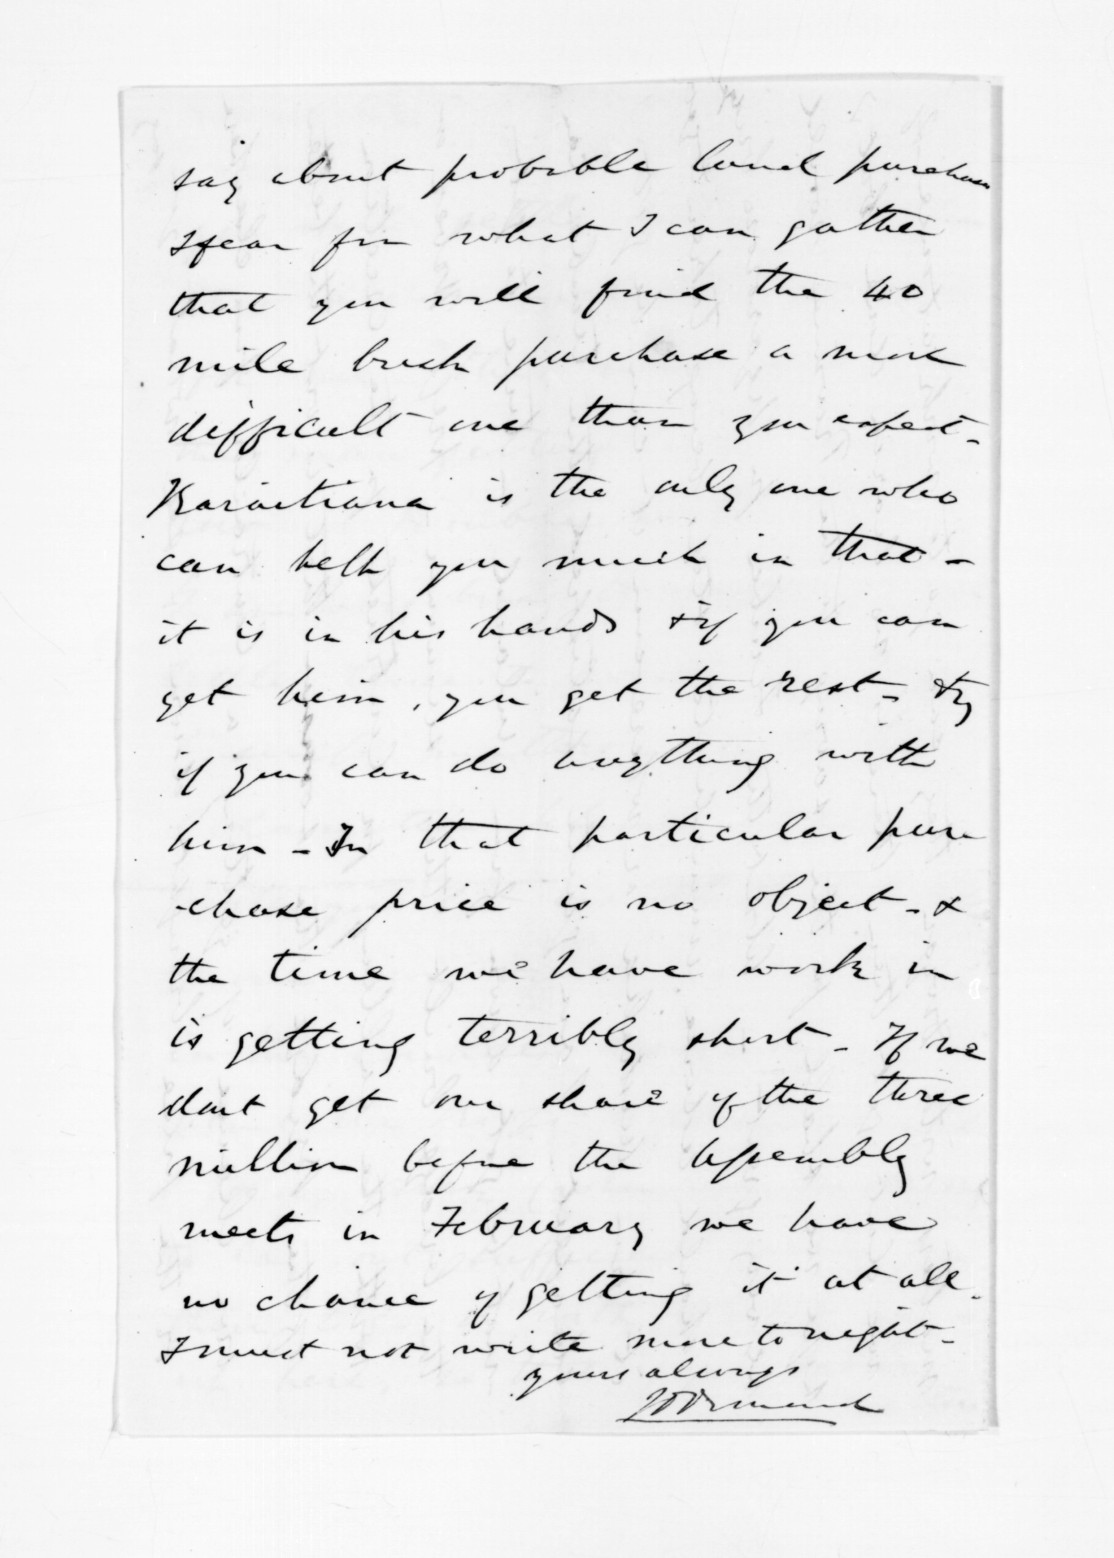 say about probable land purchases
I fear from what I can gather
that you will find the 40
mile bush purchase a more
difficult one than you expect -
Karaitiana is the only one who
can help you much in that -
it is in his hands & if you can
get him, you get the rest - try
if you can do anything with
him - In that particular pur
-chase price is no object - &
the time we have work in
is getting terribly short - If we
dont get our share of the three
million before the Assembly
meets in February we have
no chance of getting it at all.
I must not write more tonight -
yours always
JD Ormond